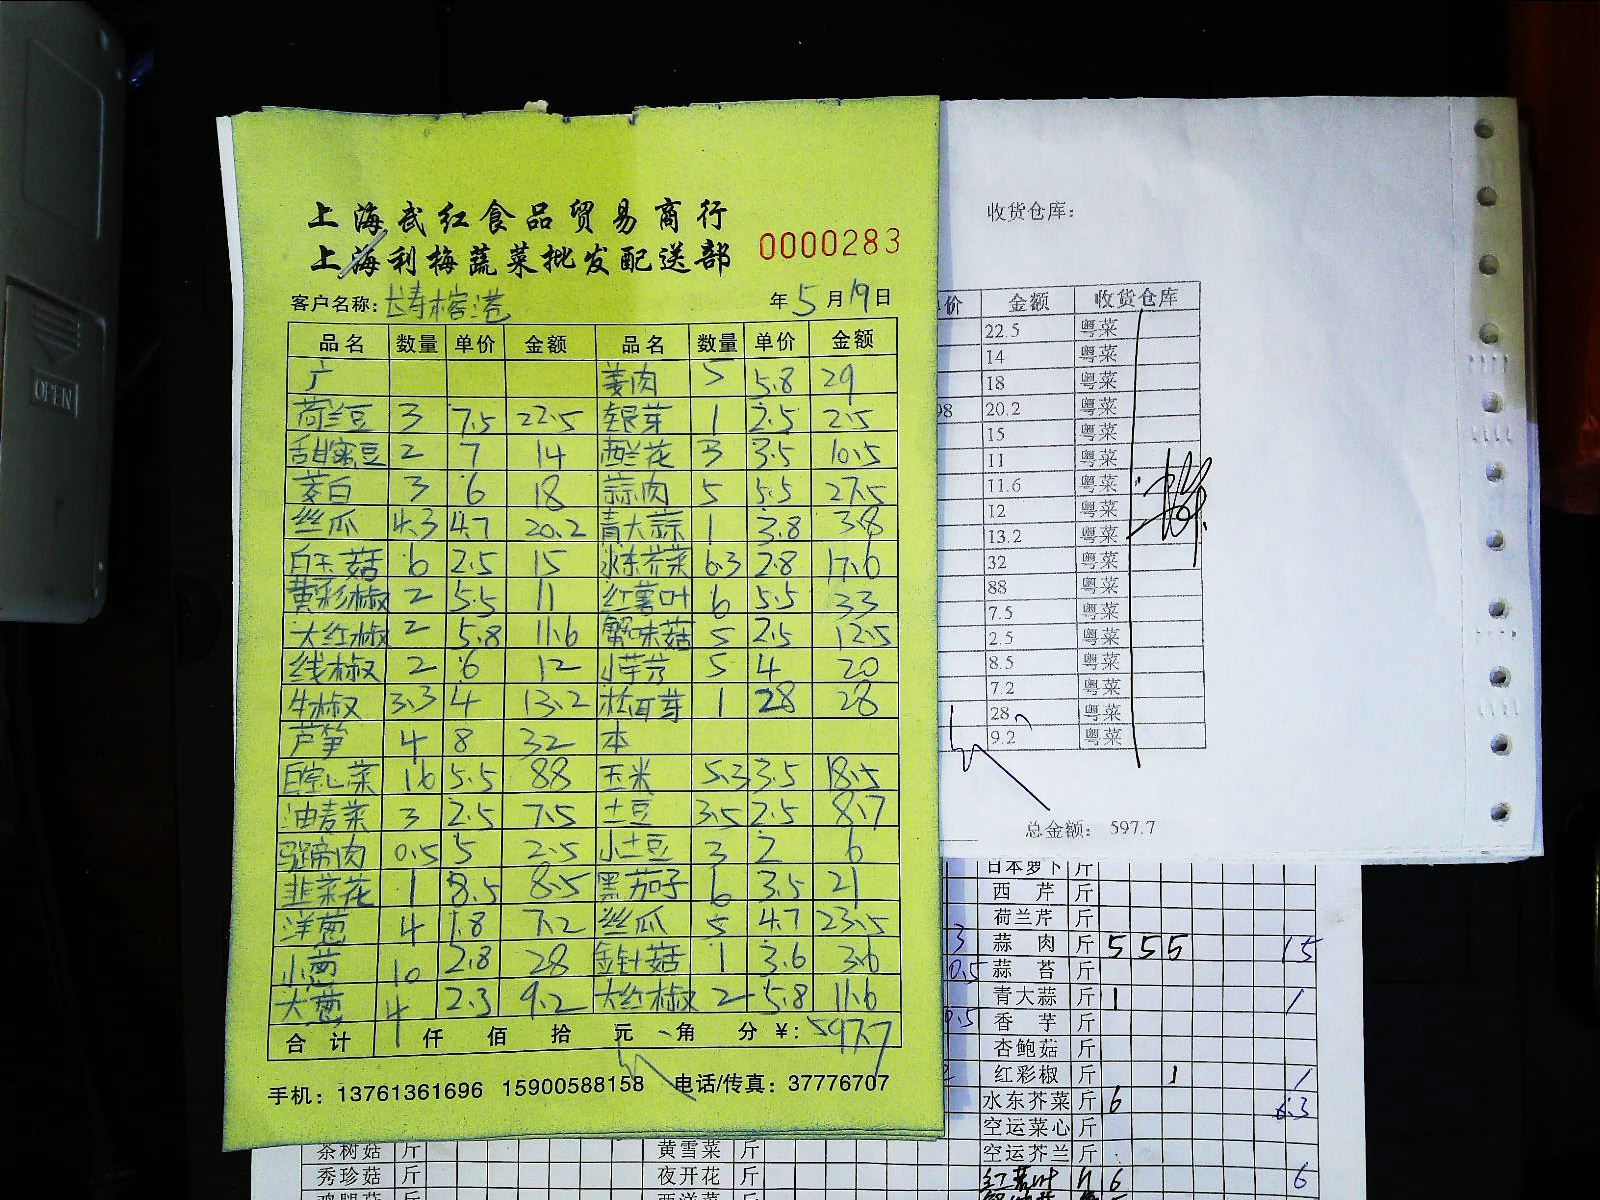 上海武红食品贸易商行
上海利梅蔬菜批发配送部 0000283
客户名称: 长寿榕港 年 5 月 19 日
品名 数量 单价 金额 品名 数量 单价 金额
广 姜肉 5 5.8 29
荷兰豆 3 7.5 22.5 银芽 1 2.5 2.5
甜蜜豆 2 7 14 西兰花 3 3.5 10.5
茭白 3 6 18 蒜肉 5 5.5 27.5
丝瓜 4.3 4.7 20.2 青大蒜 1 3.8 3.8
白玉菇 6 2.5 15 水东芥菜 6.3 2.8 17.6
黄彩椒 2 5.5 11 红薯叶 6 5.5 33
大红椒 2 5.8 11.6 蟹味菇 5 2.5 12.5
线椒 2 6 12 小芋艿 5 4 20
牛椒 3.3 4 13.2 松耳芽 1 28 28
芦笋 4 8 32 本
白空心菜 16 5.5 88 玉米 5.3 3.5 18.5
油麦菜 3 2.5 7.5 土豆 3.5 2.5 8.7
马蹄肉 0.5 5 2.5 小土豆 3 2 6
韭菜花 1 8.5 8.5 黑茄子 6 3.5 21
洋葱 4 1.8 7.2 丝瓜 5 4.7 23.5
小葱 10 2.8 28 金针菇 1 3.6 3.6
大葱 4 2.3 9.2 大红椒 2 5.8 11.6
合计 仟 佰 拾 元 角 分 ¥: 597.7
手机: 13761361696 15900588158 电话/传真: 37776707
收货仓库:
价 金额 收货仓库
22.5 粤菜
14 粤菜
18 粤菜
98 20.2 粤菜
15 粤菜
11 粤菜
11.6 粤菜
12 粤菜
13.2 粤菜
32 粤菜
88 粤菜
7.5 粤菜
2.5 粤菜
8.5 粤菜
7.2 粤菜
28 粤菜
9.2 粤菜
总金额: 597.7
日本萝卜 斤
西芹 斤
荷兰芹 斤
3 蒜肉 斤 5 5 5 15
0.5 蒜苔 斤
青大蒜 斤 1 1
0.5 香芋 斤
杏鲍菇 斤
红彩椒 斤 1 1
水东芥菜 斤 6 6.3
空运菜心 斤
茶树菇 斤 黄雪菜 斤 空运芥兰 斤
秀珍菇 斤 夜开花 斤 红薯叶 斤 6 6
OPEN